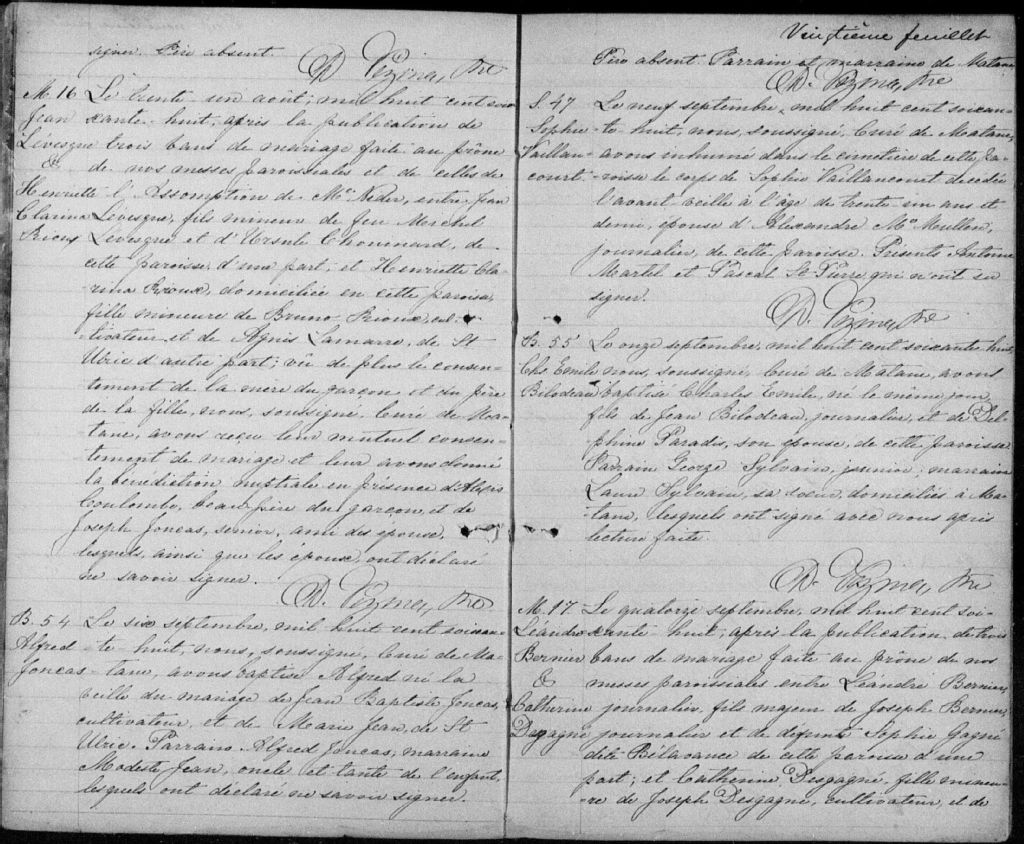 signer. Père absent.
D. Vézina, Ptre
M. 16 Le trente-un août, mil huit cent soi-
Jean xante-huit, après la publication de
Lévesque trois bans de mariage faite au prône
& de nos messes paroissiales et de celles de
Henriette l'Assomption de Mc Nider, entre Jean
Clarina Lévesque, fils mineur de feu Michel
Rioux Lévesque et d'Ursule Chouinard, de
cette paroisse, d'une part; et Henriette Cla-
rina Rioux, domiciliée en cette paroisse,
fille mineure de Bruno Rioux, cul-
tivateur et de Agnès Lamarre, de St
Ulric d'autre part; vû de plus le consen-
tement de la mère du garçon, et du père
de la fille, nous, soussigné, Curé de Ma-
tane, avons reçu leur mutuel consen-
tement de mariage et leur avons donné
la bénédiction nuptiale en présence d'Alexis
Coulombe, beau-père du garçon, et de
Joseph Joncas, senior, ami des époux,
lesquels, ainsi que les époux, ont déclaré
ne savoir signer.
D. Vézina, Ptre
B. 54 Le six septembre, mil huit cent soixan-
Alfred te-huit, nous, soussigné, Curé de Ma-
Joncas tane, avons baptisé Alfred né la
veille du mariage de Jean Baptiste Joncas,
cultivateur, et de Marie Jean, de St
Ulric. Parrain Alfred Joncas, marraine
Modeste Jean, oncle et tante de l'enfant,
lesquels ont déclaré ne savoir signer.
Vingtième feuillet
Père absent. Parrain et marraine de Matane
D. Vézina, Ptre
S. 47 Le neuf septembre, mil huit cent soixan-
Sophie te-huit, nous, soussigné, Curé de Matane,
Vaillan- avons inhumé dans le cimetière de cette pa-
court. roisse le corps de Sophie Vaillancourt décédée
l'avant veille à l'âge de trente-un ans et
demi, épouse d'Alexandre Mc Mullen,
journalier, de cette paroisse. Présents Antoine
Martel et Pascal St-Pierre qui n'ont su
signer.
D. Vézina, Ptre
B. 55 Le onze septembre, mil huit cent soixante-huit,
Chs Emile nous, soussigné, Curé de Matane, avons
Bilodeau baptisé Charles Emile, né le même jour,
fils de Jean Bilodeau, journalier, et de Del-
phine Paradis, son épouse, de cette paroisse.
Parrain George Sylvain, junior; marraine
Laure Sylvain, sa soeur, domiciliés à Ma-
tane, lesquels ont signé avec nous après
lecture faite.
D. Vézina, Ptre
M. 17 Le quatorze septembre, mil huit cent soi-
Léandre xante-huit; après la publication de trois
Bernier bans de mariage faite au prône de nos
& messes paroissiales entre Léandre Bernier,
Catherine journalier, fils majeur de Joseph Bernier,
Desgagné journalier et de défunte Sophie Gagné
dite Bélavance de cette paroisse d'une
part; et Catherine Desgagné, fille mineu-
re de Joseph Desgagné, cultivateur, et de